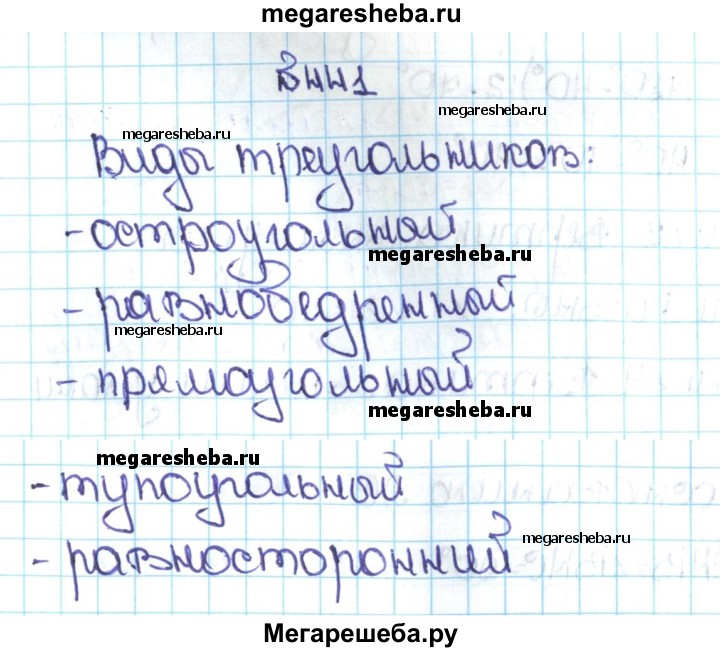 megaresheba.ru
ВНИ1
megaresheba.ru
Виды треугольников:
-остроугольный
megaresheba.ru
- равнобедренный
megaresheba.ru
- прямоугольный
megaresheba.ru
megaresheba.ru
- тупоугольный
megaresheba.ru
- равносторонний
Мегарешеба.ру